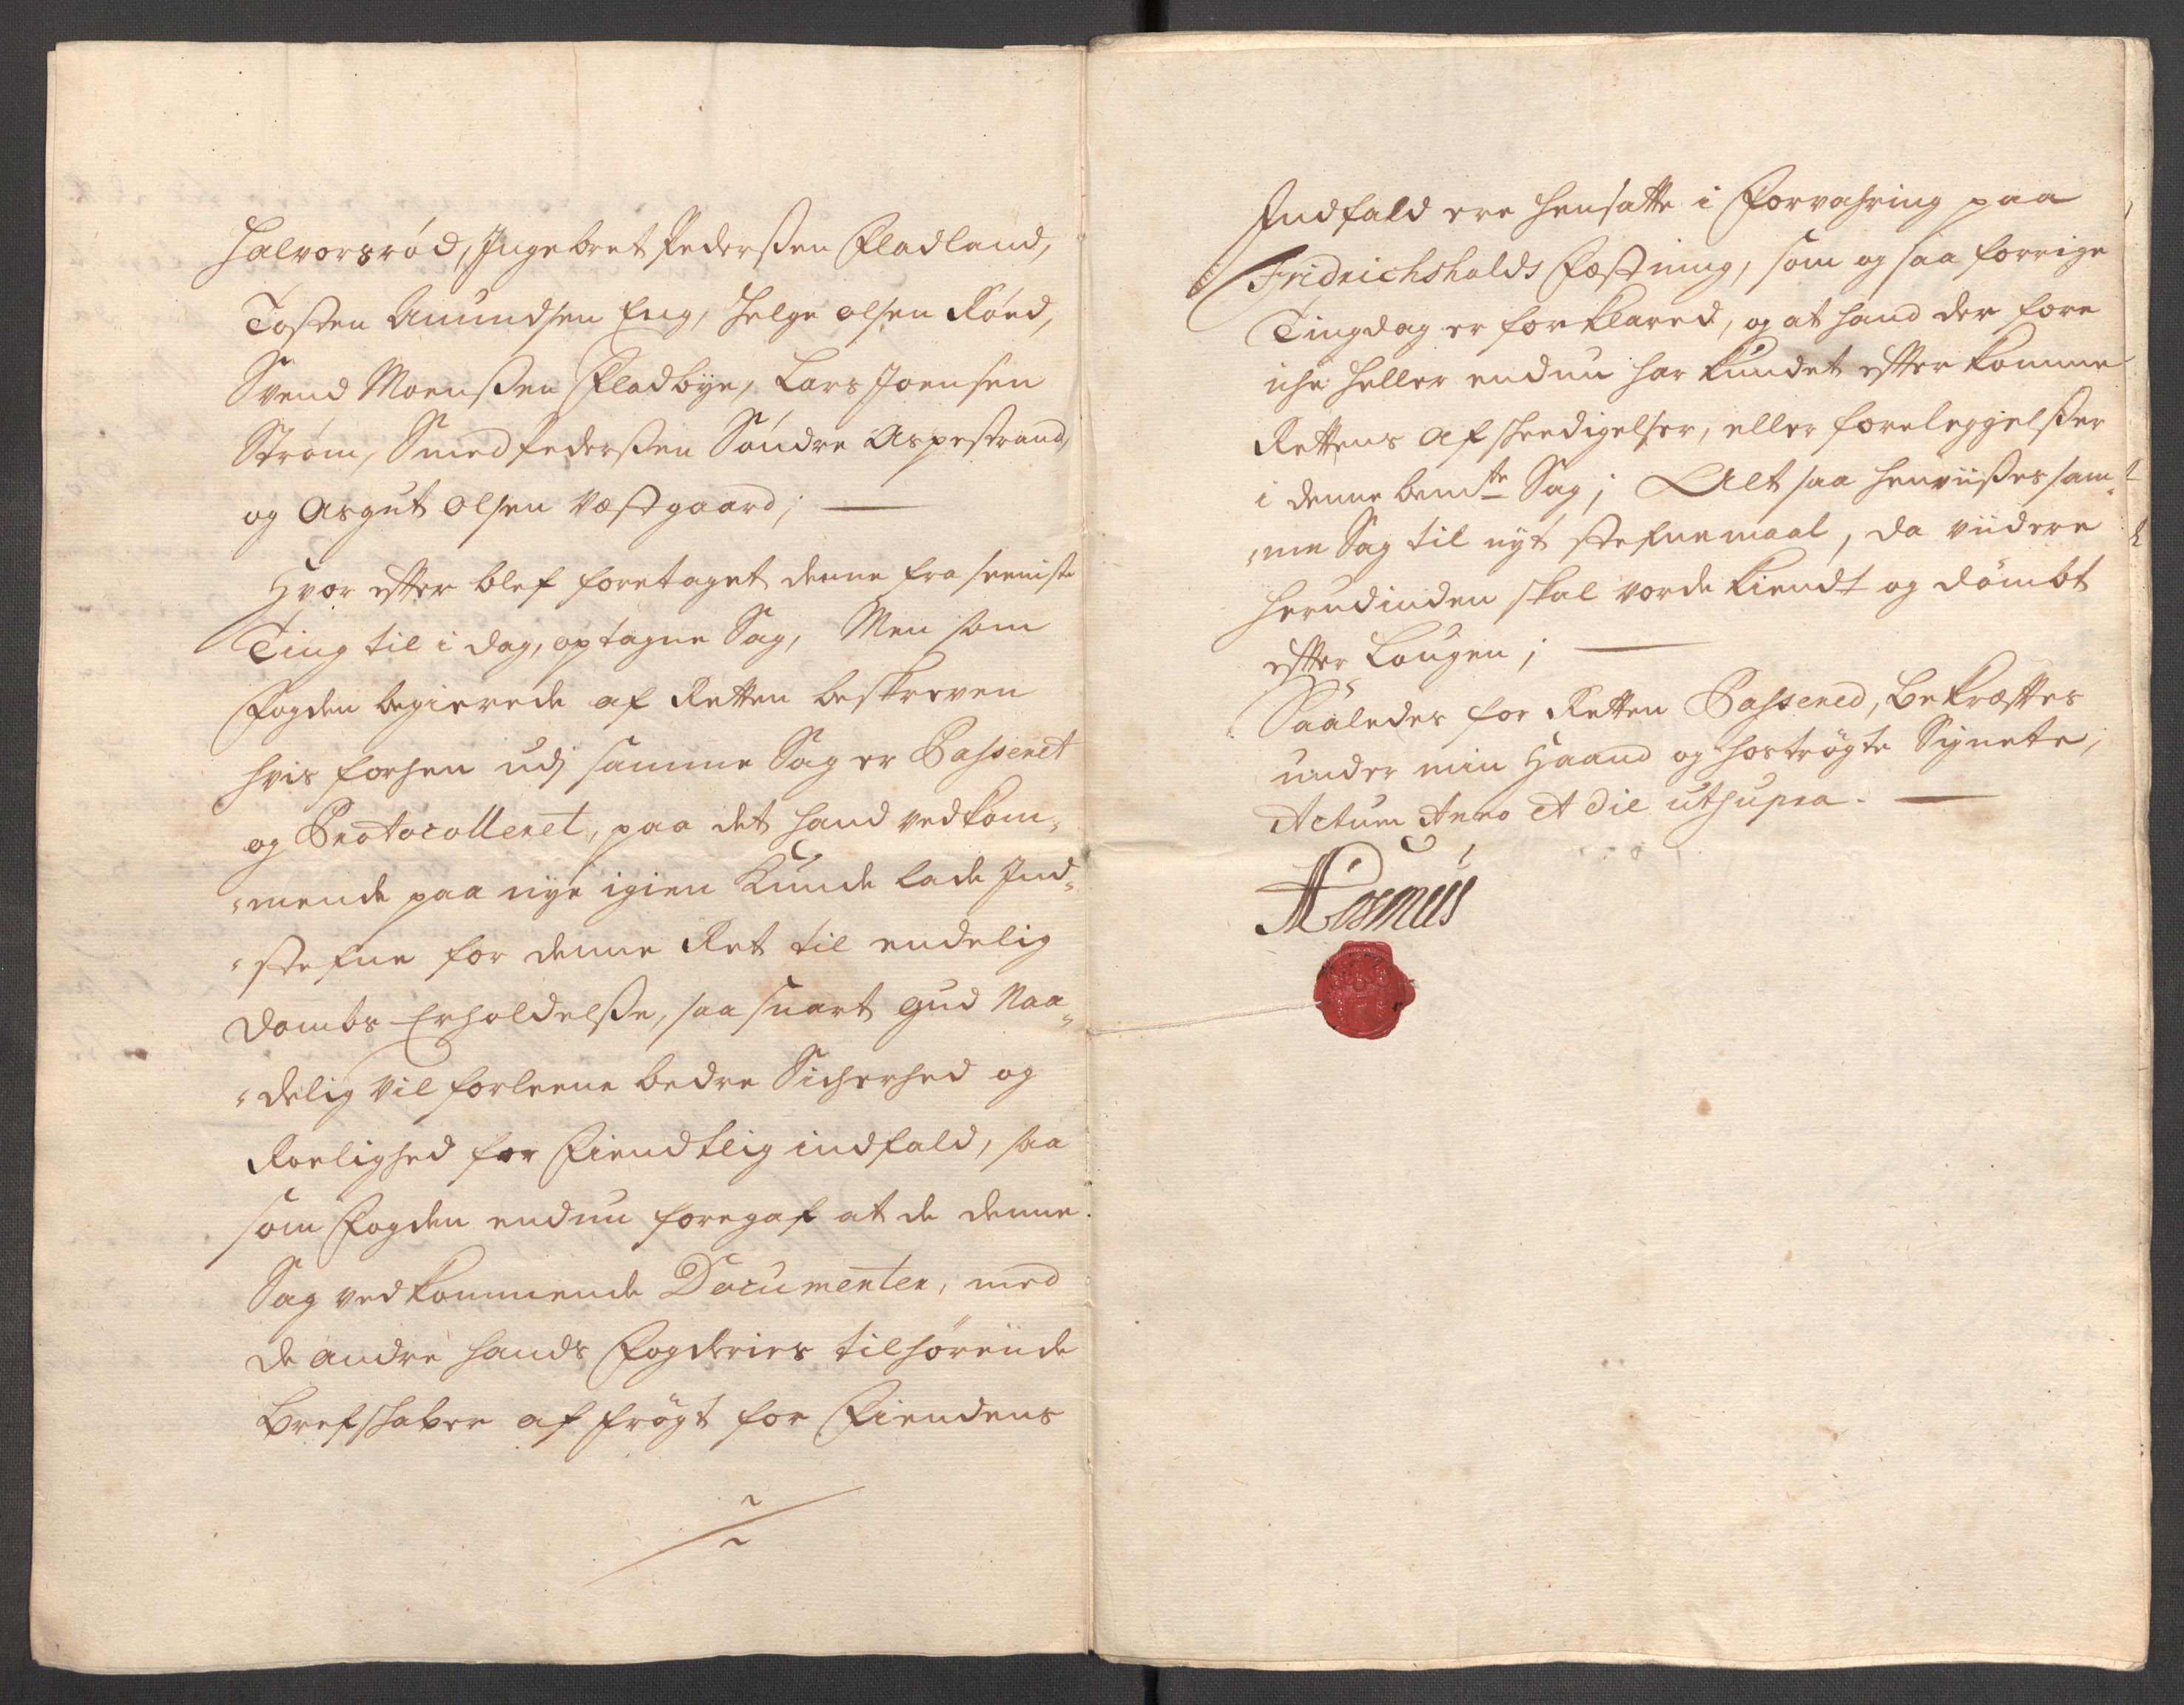 Halvorsrød, Ingebret Pedersen Fladland,
Tosten Amundsen Eng, Helge olsen Röed,
Svend Moensen Fladbye, Lars Joensen
Strøm, Smed Pedersen Söndre Aspestrand,
og Asgut olsen Væstgaard;
Hvor efter blef foretaget denne fra seeniste
Ting til i dag, optagne Sag, Men som
Fogden begierede af Retten beskreven
hvis forhen udj samme Sag er Passeret
og Protocolleret, paa det hand vedkom¸
¸mende paa nye igien kunde lade Ind¸
¸stefne for denne Ret til endelig
dombs Erholdelse, saa snart Gud Naa¸
¸delig vil forleene bedre Sicherhed og
Roelighed for Fiendtlig indfald, saa
som Fogden endnu foregaf at de denne
Sag vedkommende Documenter, med
de andre hands Fogderies tilhörende
brefskaber af frögt for Fiendens
Indfald ere hensatte i Forvahring paa
Fridrichshalds Fæstning, som og saa forrige
Tingdag er forklared, og at hand der fore
iche heller endnu har kundet efterkomme
Rettens afsheedigelser, eller foreleggelser
i denne bemte Sag; Alt saa henviises sam¸
¸me Sag til nyt stefnemaal, da viidere
herudinden skal vorde kiendt og dömbt
efter Lougen;
Saaledes for Retten Passered, bekræftes
under min Haand og hoströgte Signete;
Actum Anno et die utsupra.